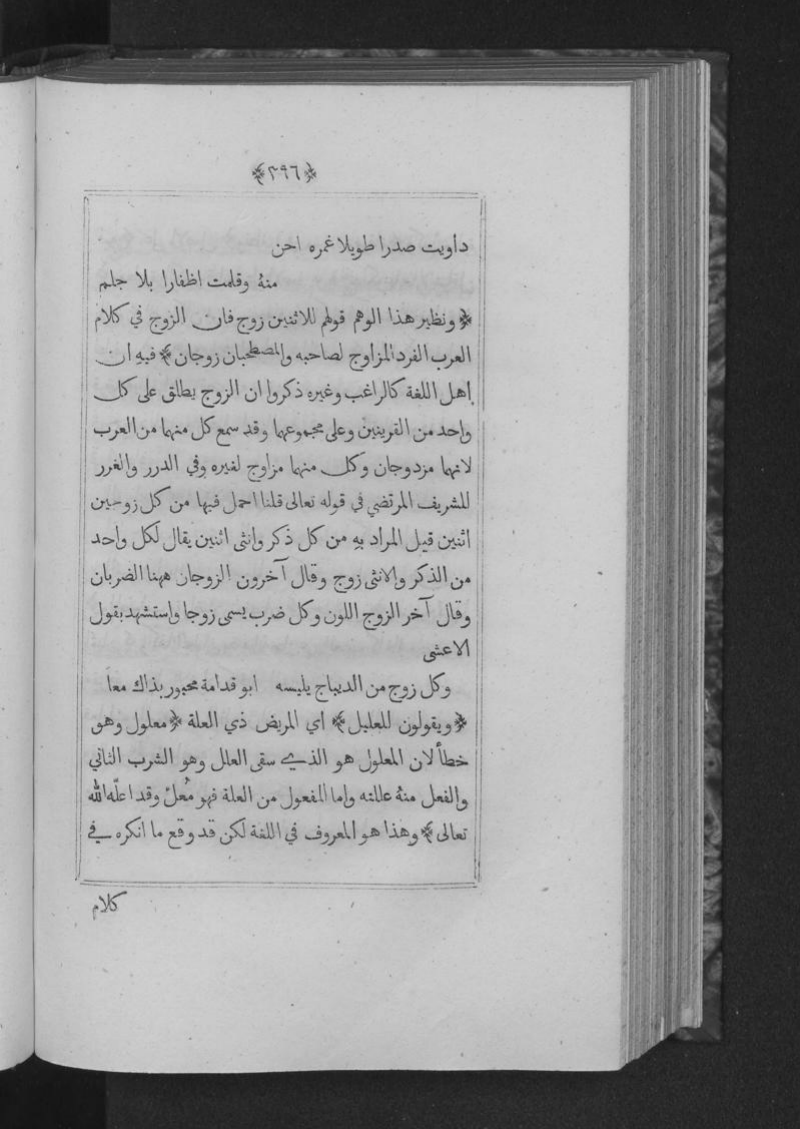 ﴿٢٩٦﴾
داويت صدرا طويلا غمره احن
منهُ وقلمت اظفارا بلا جلم
﴿ونظير هذا الوهم قولهم للاثنين زوج فان الزوج في كلام
العرب الفرد المزاوج لصاحبه والمصطحبان زوجان﴾ فيهِ ان
اهل اللغة كالراغب وغيره ذكروا ان الزوج يطلق على كل
واحد من القرينين وعلى مجموعهما وقد سمع كل منهما من العرب
لانهما مزدوجان وكل منهما مزاوج لغيره وفي الدرر والغرر
للشريف المرتضي في قوله تعالى قلنا احمل فيها من كل زوجين
اثنين قيل المراد بهِ من كل ذكر وانثى اثنين يقال لكل واحد
من الذكر والانثى زوج وقال آخرون الزوجان ههنا الضربان
وقال آخر الزوج اللون وكل ضرب يسمى زوجا واستشهد بقول
الاعشى
وكل زوج من الديباج يلبسه ابو قدامة محبور بذاك معا
﴿ويقولون للعليل﴾ اي المريض ذي العلة ﴿معلول وهو
خطأ لان المعلول هو الذي سقى العلل وهو الشرب الثاني
والفعل منهُ عللته واما المفعول من العلة فهو مُعلّ وقد اعلّه الله
تعالى﴾ وهذا هو المعروف في اللغة لكن قد وقع ما انكره في
كلام